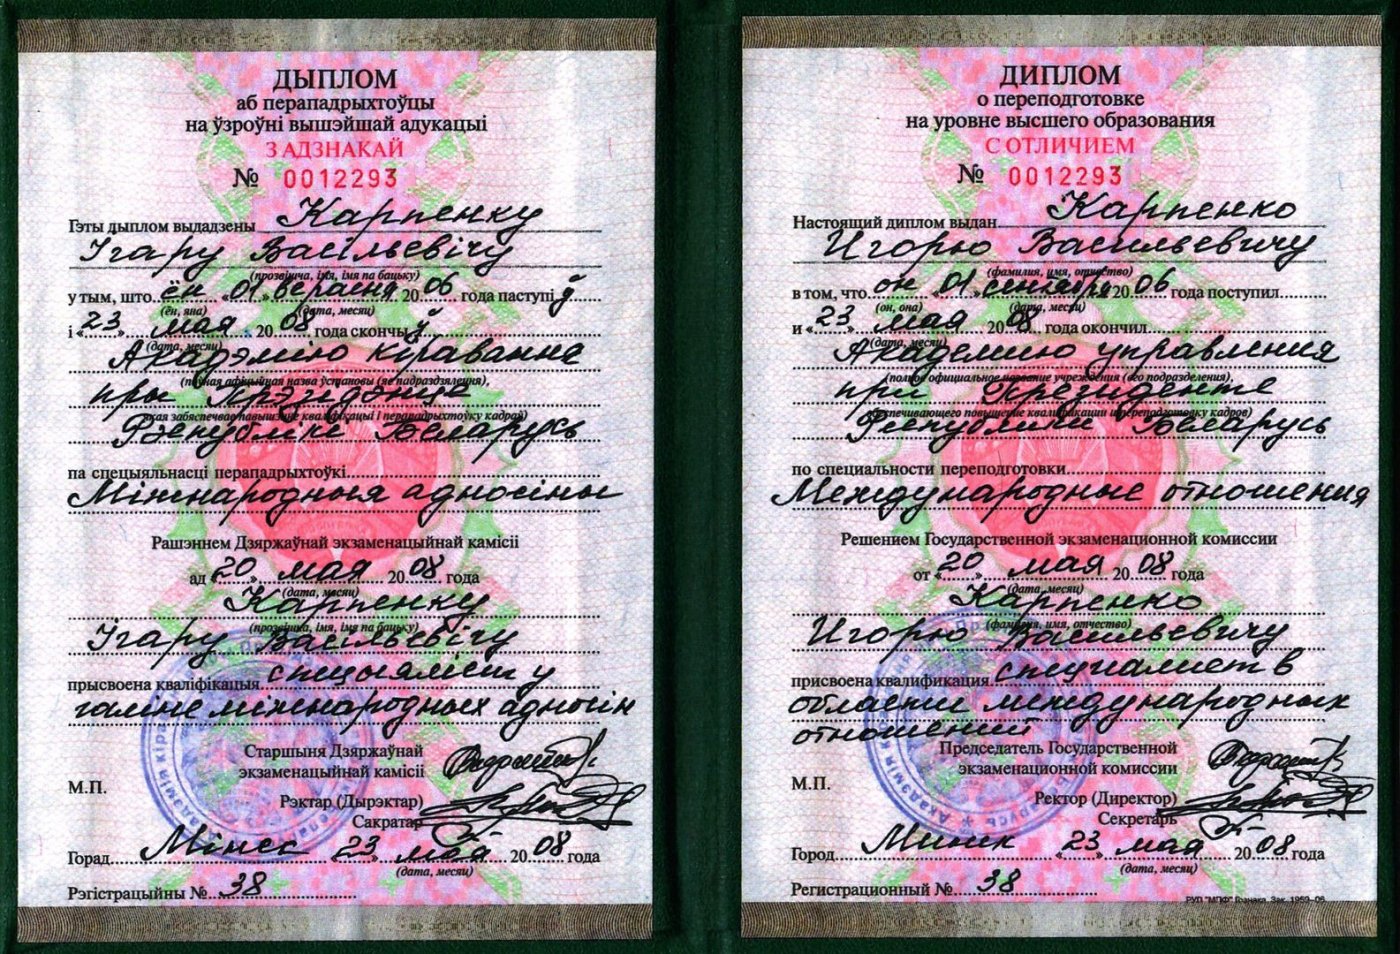 ДЫПЛОМ
аб перападрыхтоўцы
на ўзроўні вышэйшай адукацыі
З АДЗНАКАЙ
№ 0012293
Гэты дыплом выдадзены Карпенку
Ігару Васільевічу
(прозвішча, імя, імя па бацьку)
у тым, што ён «01» верасня 2006 года паступіў
(ён, яна) (дата, месяц)
і «23» мая 2008 года скончыў
(дата, месяц)
Акадэмію кіравання
(поўная афіцыйная назва ўстановы (яе падраздзялення),
пры Прэзідэнце
якая забяспечвае павышэнне кваліфікацыі і перападрыхтоўку кадраў)
Рэспублікі Беларусь
па спецыяльнасці перападрыхтоўкі
Міжнародныя адносіны
Рашэннем Дзяржаўнай экзаменацыйнай камісіі
ад «20» мая 2008 года
(дата, месяц)
Карпенку
(прозвішча, імя, імя па бацьку)
Ігару Васільевічу
прысвоена кваліфікацыя спецыяліст у
галіне міжнародных адносін
Старшыня Дзяржаўнай
экзаменацыйнай камісіі
М.П.
Рэктар (Дырэктар)
Сакратар
Горад Мінск «23» мая 2008 года
(дата, месяц)
Рэгістрацыйны № 38
ДИПЛОМ
о переподготовке
на уровне высшего образования
С ОТЛИЧИЕМ
№ 0012293
Настоящий диплом выдан Карпенко
Игорю Васильевичу
(фамилия, имя, отчество)
в том, что он «01» сентября 2006 года поступил
(он, она) (дата, месяц)
и «23» мая 2008 года окончил
(дата, месяц)
Академию управления
(полное официальное название учреждения (его подразделения),
при Президенте
обеспечивающего повышение квалификации и переподготовку кадров)
Республики Беларусь
по специальности переподготовки
Международные отношения
Решением Государственной экзаменационной комиссии
от «20» мая 2008 года
(дата, месяц)
Карпенко
(фамилия, имя, отчество)
Игорю Васильевичу
присвоена квалификация специалист в
области международных
отношений
Председатель Государственной
экзаменационной комиссии
М.П.
Ректор (Директор)
Секретарь
Город Минск «23» мая 2008 года
(дата, месяц)
Регистрационный № 38